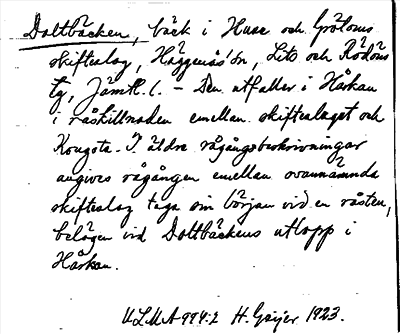 Dottbäcken, bäck i Huse och Grötoms
skifteslag, Häggenås sn, Lits och Rödöns
tg, Jämtl. l. – Den utfaller i Hårkan
i råskillnaden emellan skifteslaget och
Kougsta. I äldre rågångsbeskrivningar
angives rågången emellan ovannämnda
skifteslag taga sin början vid en råsten,
belägen vid Dottbäckens utlopp i
Hårkan.
ULMA 994:2 H. Geijer 1923.